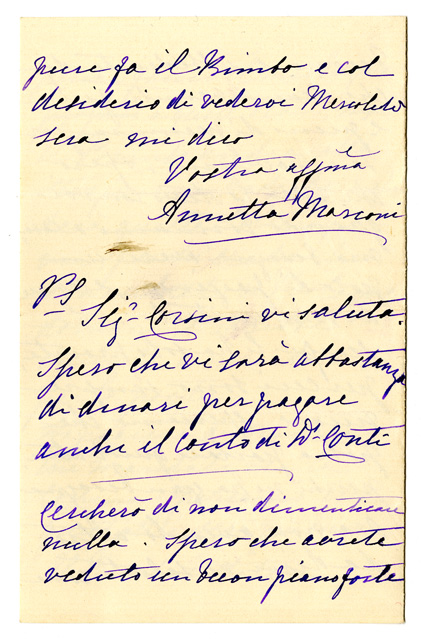 pure fa il Bimbo e col
desiderio di vedervi Mercoledì
sera mi dico
Vostra affma
Annetta Marconi
PS
Sigr Corsini vi saluta.
Spero che vi sarà abbastanza
di denari per pagare
anche il conto di Dr Conti
Cercherò di non dimenticare
nulla. Spero che avrete
veduto un buon pianoforte